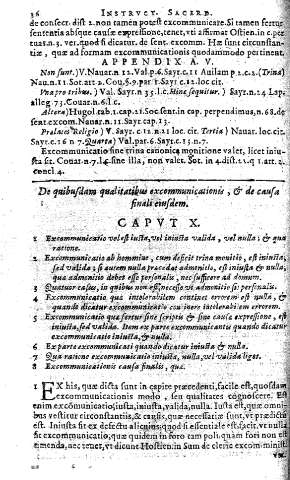 36 INSTRVCT. SACERD.
de consecr. dist 2. non tamen potest excommunicare. Si tamen fertur
sententia absque causæ expressione, tenet, vti affirmat Ostien. in c. per
tuas n. 3. ver. quod si dicatur de sent. excomm. Hæ sunt circunstan-
tiæ, quæ ad formam excommunicationis quodammodo pertinent.
APPENDIX A.V.
Non sunt.) V. Nauar. n. 12. Val. p. 6. Sayr. c. 11 Auilam p. 2. c. 2. (Trina)
Nau. n. 11. Sot. art. 2. Cou. § 9. par. 1 Sayr c. 12. loc. cit.
Vna pro tribus.) Val. Sayr. n. 35. l. c. Sine sequitur.) Sayr. n. 24. Lap.
alleg. 73. Couar. n. 6. l. c.
Altera) Hugol. tab. 1. cap. 21. Soc. sent. in cap. perpendimus, n. 68. de
sent. excom. Nauar. n. 11. Sayr cap. 13.
Prælatus Religio) V. Sayr c. 12. n. 21 loc. cit. Tertia) Nauar. loc. cit.
Sayr c. 16 n. 7 Quarta) Val. par. 6. Sayr. c. 13. n. 7.
Excommunicatio sine trina canonica monitione valet, licet iniu-
sta sit. Couar. n. 7. l. 4. sine illa, non valet. Sot. in 4. dist. 22. q. 1. art. 2.
concl. 4.
De quibusdam qualitatibus excommunicationis, & de causa
finali eiusdem.
CAPVT X.
1 Excommunicatio vel est iusta, vel iniusta valida, vel nulla; & qua
ratione.
2 Excommunicatio ab homine, cum deficit trina monitio, est iniusta,
sed valida; si autem nulla præcedat admonitio, est iniusta & nulla,
quæ admonitio debet esse personalis, nec sufficere ad domum.
3 Quatuor casus, in quibus non est necesse vt admonitio sit personalis.
4 Excommunicatio quæ intolerabilem continet errorem est nulla, &
quando dicatur excommunicatio continere intolerabilem errorem.
5 Excommunicatio quæ fertur sine scriptis & sine causa expressione, est
iniusta, sed valida. Item ex parte excommunicantis quando dicatur
excommunicatio iniusta, & nulla.
6 Ex parte excommunicati quando dicatur iniusta & nulla.
7 Qua ratione excommunicatio iniusta, nulla, vel valida liget.
8 Excommunicationis causa finalis, quæ.
1 EX his, quæ dicta sunt in capite præcedenti, facile est, quosdam
excommunicationis modo, seu qualitates cognoscere. Est
enim excommunicatio, iusta, iniusta, valida, nulla. Iusta est, quæ omni-
bus vestitur circunstantiis, & causis, quæ necessariæ sunt, vt prædictū
est. Iniusta fit ex defectu alicuius: quod si essentiale est, facit, vt nulla
sit excommunicatio, quæ quidem in foro tam poli quam fori non est
timenda, nec tenet, vt dicunt Hostien. in Sum de cleric excom. minist.